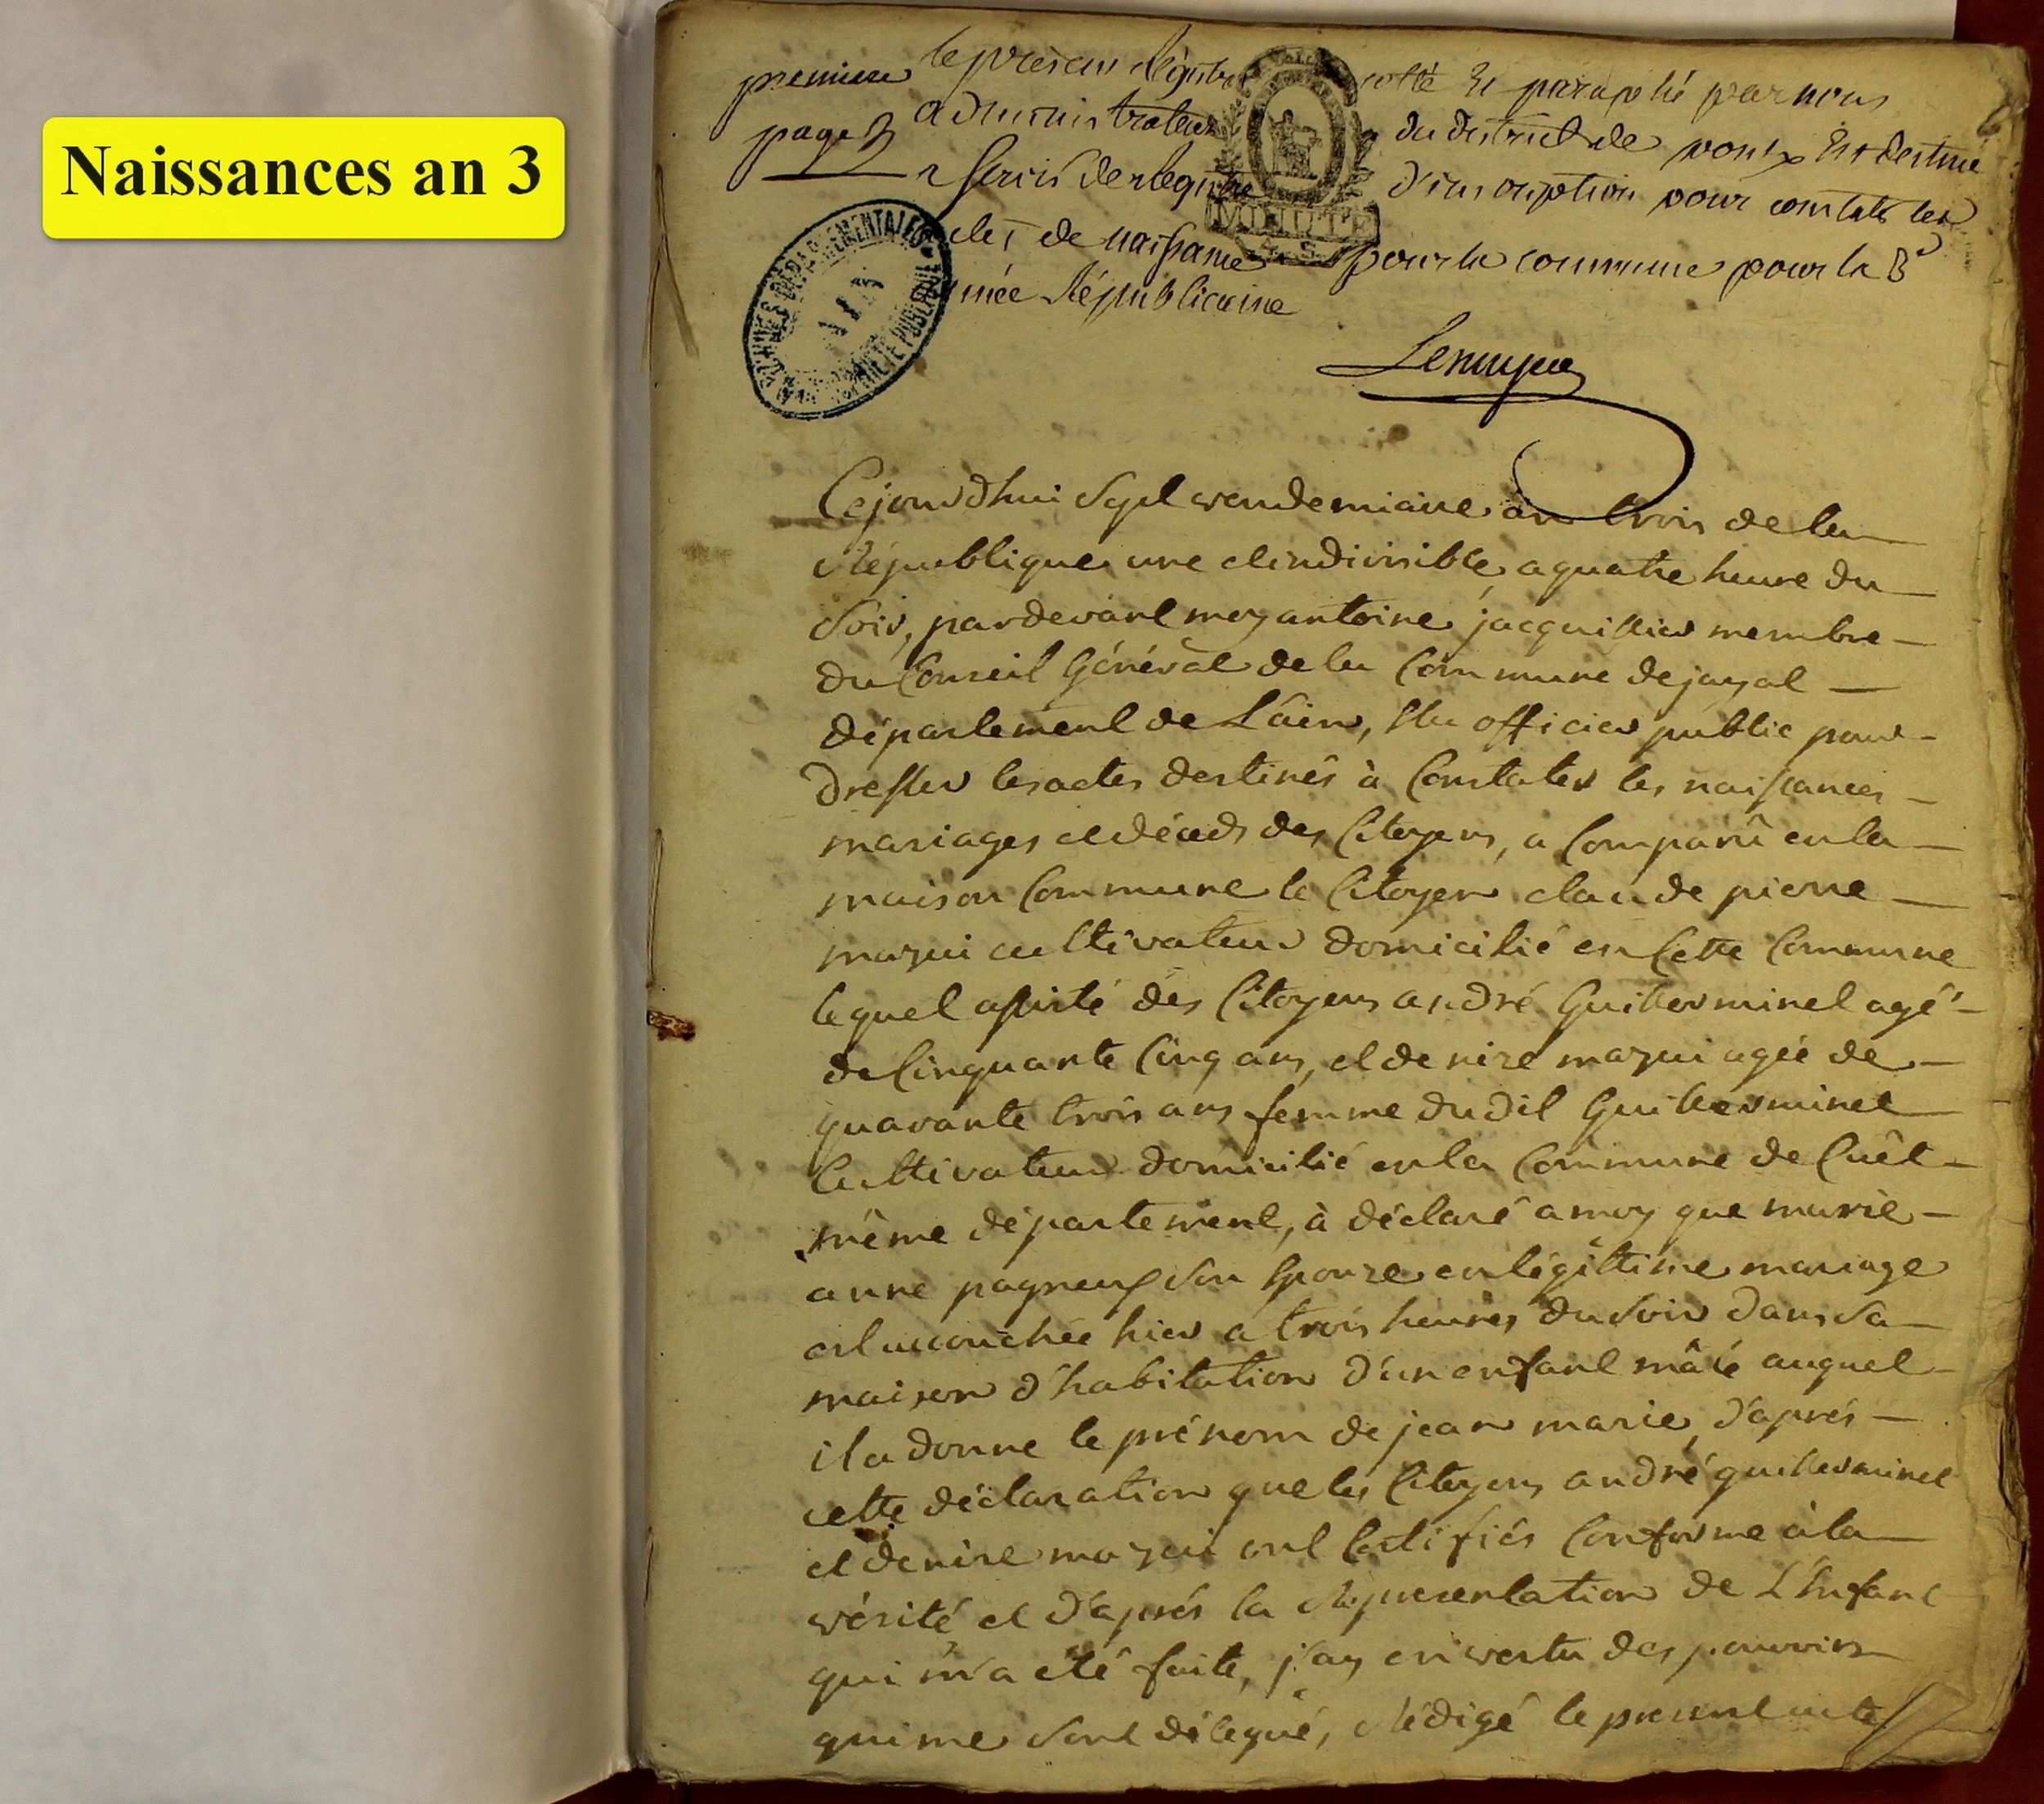 Naissances an 3
premiere
page
le présent Régistre cotté Et paraphé par nous
administrateur du district de pont Est destiné
a servir de Registre d'inscription pour constater les
actes de naissance pour la commune pour la 3e
année Républicaine
MINUTE
4. S.
ARCHIVES DÉPARTEMENTALES
AIN
PROPRIÉTÉ PUBLIQUE
Cejourdhui sept vendemiaire an trois de la
République une et indivisible, a quatre heure du
Soir, pardevant moy antoine jacquillier membre
du Conseil Général de la Commune de jayat
département de L'ain, Elu officier public pour
dresser les actes destinés à Constater les naissances
mariages et déceds des Citoyens, a Comparû en la
maison Commune le Citoyen claude pierre
mazui cultivateur domicilié en Cette Commune
lequel assisté des Citoyens andré Guillerminet agé
de Cinquante Cinq ans, et denize mazui agée de
quarante trois ans femme dudit Guillerminet
Cultivateur domicilié en la Commune de Cuêt
même département, à déclaré a moy que marie
anne pagneux son Epouze en légittime mariage
est accouchée hier a trois heures du soir dans sa
maison d'habitation d'un enfant mâle auquel
il a donne le prénom de jean marie, d'aprés
cette déclaration que les Citoyens andré guillerminet
et denise mazui ont Certifiés Conforme à la
vérité et d'aprés la Représentation de L'Enfant
qui m'a eté faite, j'ay en vertu des pouvoirs
qui me sont délegué, Rédigé le présent acte